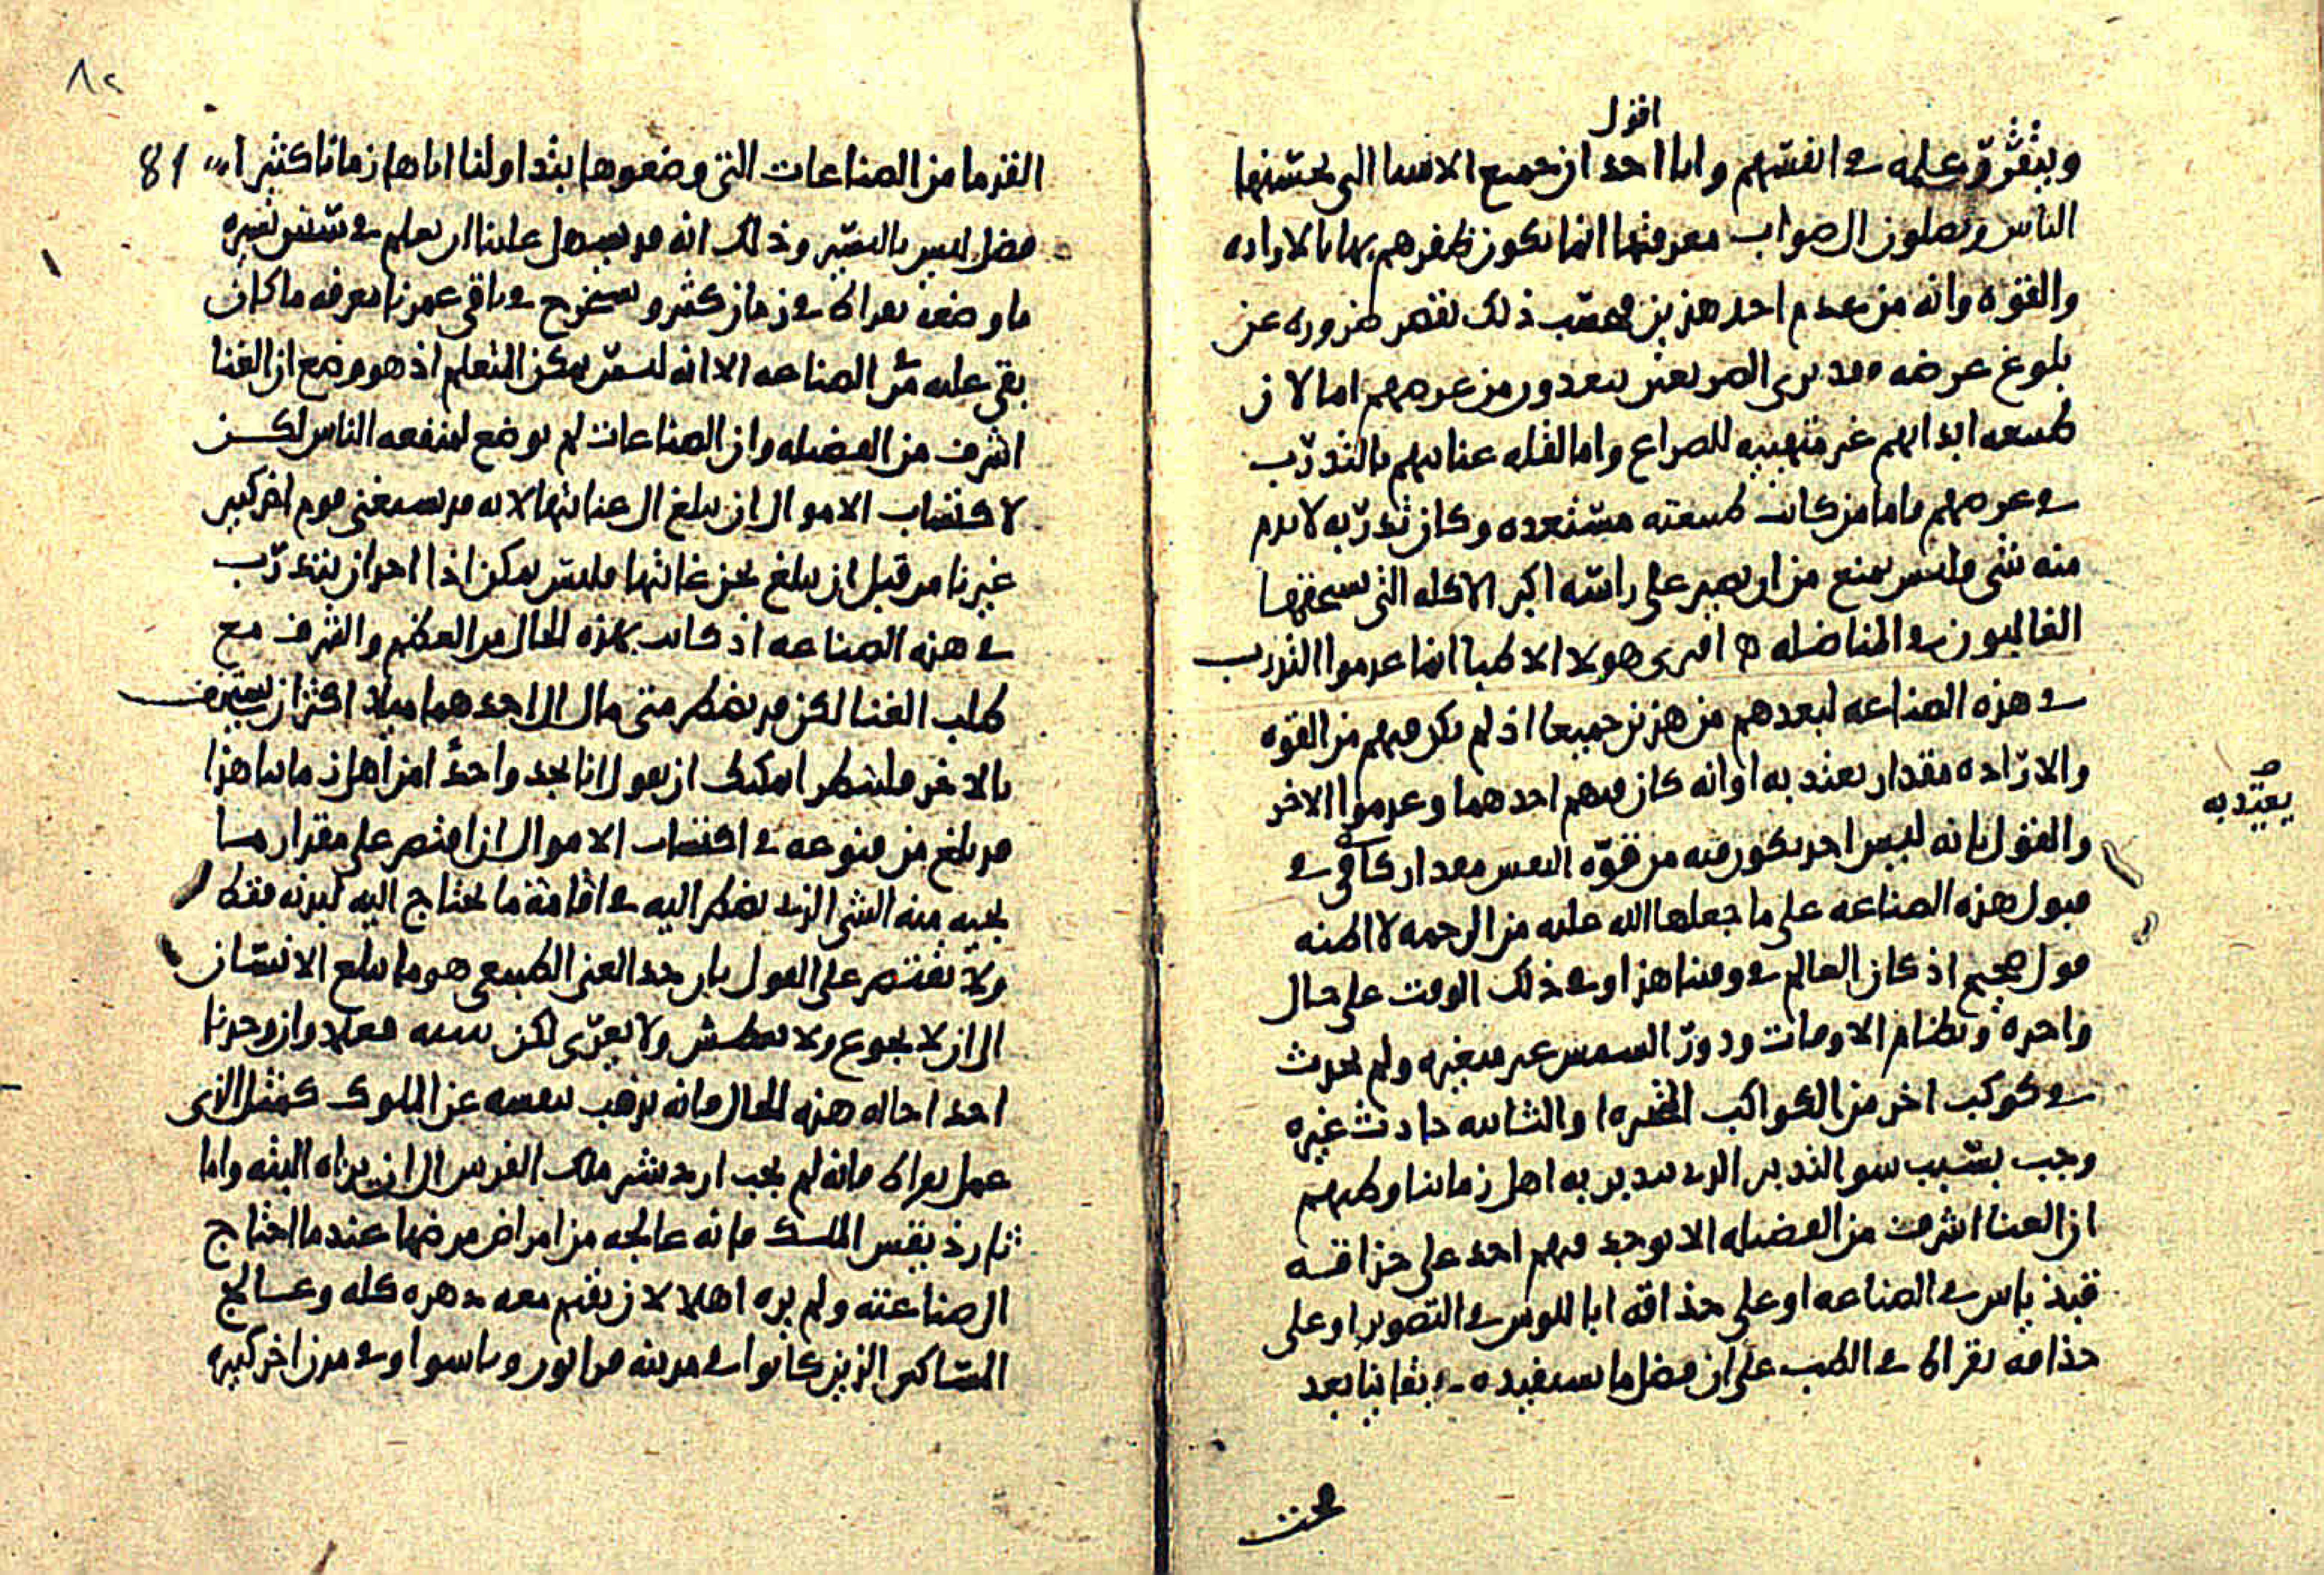 اقول
ويتقرر عليه في انفسهم واما احد ان جميع الاشيا التي يحسنها
الناس ويصلون الى صواب معرفتها انما يكون ظفرهم بها بالاراده
والقوه وانه من عدم احد هذين فبحسب ذلك يقصر ضروره عن
بلوغ غرضه وقد نرى المصارعين يبعدون من غرضهم اما لان
طبيعه ابدانهم غير متهييه للصراع واما لقله عنايتهم بالتدرب
في غرضهم فاما من كانت طبيعته مستعده وكان تدربه لا يذم
منه شي فليس يمنع من ان يصير على راسه اكبر الاكله التي يستحقها
الغالبون في المناضله افترى هولا الاطبا انما عدموا التدرب
في هذه الصناعه لبعدهم من هذين جميعا اذ لم يكن فيهم من القوه
والاراده مقدار يعتد به او انه كان فيهم احدهما وعدموا الاخر
يعتد به
والقول بانه ليس احد يكون فيه من قوه النفس مقدار كافي في
قبول هذه الصناعه على ما جعلها الله عليه من الرحمه لا اظنه
قول صحيح اذ كان العالم في وقتنا هذا وفي ذلك الوقت على حال
واحده ونظام الاوقات ودور الشمس غير متغيره ولم يحدث
في كوكب اخر من الكواكب المتحيره او الثابته حادث غيره
وجب بسبب سو التدبير الذي يتدبر به اهل زماننا وظنهم
ان الغنا اشرف من الفضيله الا يوجد فيهم احد على حذاقه
فيذياس في الصناعه او على حذاقه ابا للوس في التصوير او على
حذاقه بقراط في الطب على ان فضل ما نستفيده في بقاينا بعد
81
القدما من الصناعات التي وضعوها بتداولنا اياها زمانا كثيرا
فضل ليس باليسير وذلك انه قد يسهل علينا ان نعلم في سنين يسيره
ما وضعه بقراط في زمان كثير ونستخرج في باقي عمرنا معرفه ما كان
بقي عليه من الصناعه الا انه ليس يمكن المتعلم اذ هو وضع ان الغنا
اشرف من الفضيله وان الصناعات لم توضع لمنفعه الناس لكن
لاكتساب الاموال ان يبلغ الى غايتها لانه قد يستغني قوم اخر كثير
غيرنا من قبل ان يبلغ نحن غايتها فليس يمكن اذا احد ان يتدرب
في هذه الصناعه اذ كانت بهذه الحال من العظم والشرف مع
طلب الغنا لكن قد يضطر متى مال الى احدهما ميلا اكثر ان يستخف
بالاخر فلننظر ايمكنك ان تقول انا نجد واحدا من اهل زماننا هذا
قد بلغ من قنوعه في اكتساب الاموال ان اقتصر على مقدار ما
يجيه منه الشي الذي يضطر اليه في اقامه ما يحتاج اليه لبدنه فقط
ولا يقتصر على القول بان حد الغنى الطبيعي هو ما يبلغ الانسان
الى ان لا يجوع ولا يعطش ولا يعرى لكن يبينه فعلا وان وجدنا
احدا حاله هذه الحال فانه يذهب بنفسه عن الملوك كمثل الذي
عمل بقراط فانه لم يجب ارطخشسثر ملك الفرس الى ان يراه البته واما
الملك فانه عالجه من امراض مرضها عندما احتاج
الى صناعته ولم يره اهلا لان يقيم معه دهره كله وعالج
المساكين الذين كانوا في مدينه قرانون وثاسوا وفي مدن اخر كثيره